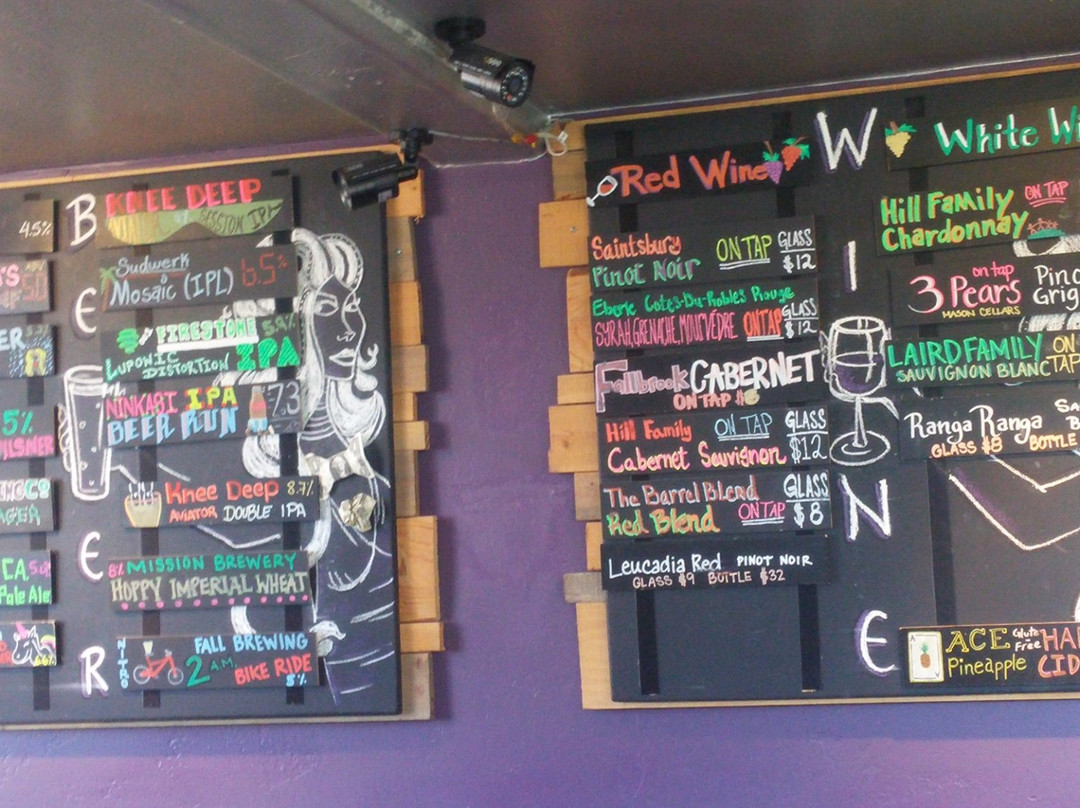 4.5%
5%
PILSNER
CA
Pale Ale
B
E
E
R
KNEE DEEP
SESSION IPA
Sudwerk 6.5%
Mosaic (IPL)
FIRESTONE
LUPONIC DISTORTION IPA
NINKASI IPA 7.3
BEER RUN
Knee Deep 8.7%
AVIATOR DOUBLE IPA
8% MISSION BREWERY
HOPPY IMPERIAL WHEAT
NITRO
FALL BREWING
2 A.M. BIKE RIDE
8%
W
I
N
E
Red Wine
Saintsbury ON TAP GLASS
Pinot Noir $12
Eberle Cotes-Du-Robles Rouge GLASS
SYRAH, GRENACHE, MOURVEDRE ON TAP $12
Fallbrook CABERNET
ON TAP
Hill Family ON TAP GLASS
Cabernet Sauvignon $12
The Barrel Blend GLASS
Red Blend ON TAP $8
Leucadia Red PINOT NOIR
GLASS $9 BOTTLE $32
White
Hill Family ON TAP
Chardonnay
3 Pears on tap
MASON CELLARS
LAIRD FAMILY ON
SAUVIGNON BLANC TAP
Ranga Ranga
GLASS $8 BOTTLE
ACE Gluten Free
Pineapple